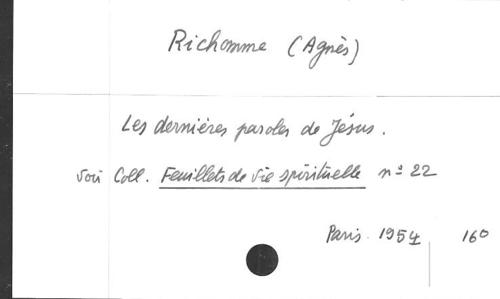 Richomme (Agnès)
Les dernières paroles de Jésus.
voir Coll. Feuillets de vie spirituelle nº 22
Paris. 1954 160